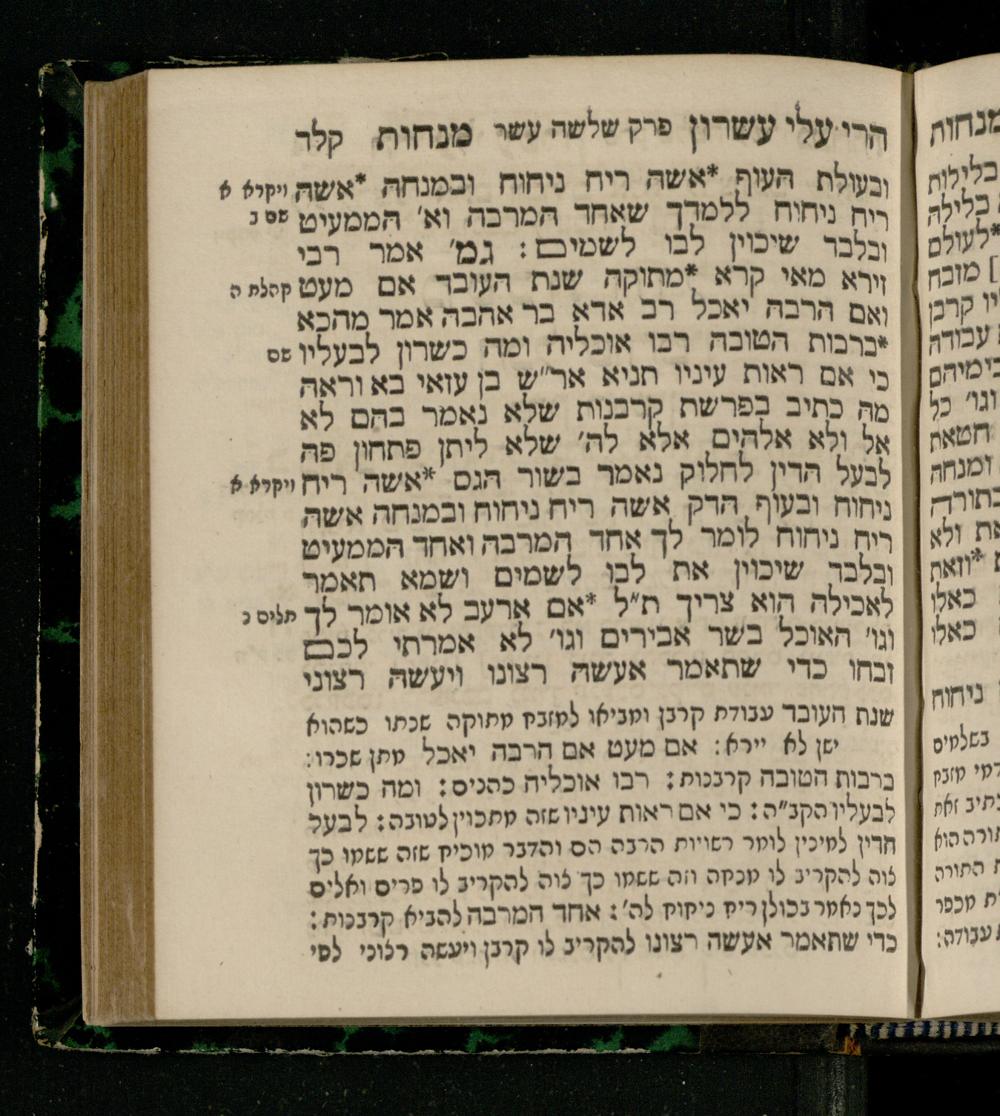 הרי עלי עשרון פרק שלשה עשר מנחות קלד
ובעולת העוף *אשה ריח ניחוח ובמנחה *אשה ויקרא א
ריח ניחוח ללמדך שאחד המרבה וא׳ הממעיט שם ב
ובלבד שיכוין לבו לשמים: גמ׳ אמר רבי
זירא מאי קרא *מתוקה שנת העובד אם מעט קהלת ה
ואם הרבה יאכל רב אדא בר אהבה אמר מהכא
*ברבות הטובה רבו אוכליה ומה כשרון לבעליו שם
כי אם ראות עיניו תניא אר״ש בן עזאי בא וראה
מה כתיב בפרשת קרבנות שלא נאמר בהם לא
אל ולא אלהים אלא לה׳ שלא ליתן פתחון פה
לבעל הדין לחלוק נאמר בשור הגס *אשה ריח ויקרא א
ניחוח ובעוף הדק אשה ריח ניחוח ובמנחה אשה
ריח ניחוח לומר לך אחד המרבה ואחד הממעיט
ובלבד שיכוין את לבו לשמים ושמא תאמר
לאכילה הוא צריך ת״ל *אם ארעב לא אומר לך תלים נ
וגו׳ האוכל בשר אבירים וגו׳ לא אמרתי לכם
זבחו כדי שתאמר אעשה רצונו ויעשה רצוני
שנת העובד עבודת קרבן ומביאו למזבח מתוקה שנתו כשהוא
ישן לא יירא: אם מעט אם הרבה יאכל מתן שכרו:
ברבות הטובה קרבנות: רבו אוכליה כהנים: ומה כשרון
לבעליו הקב״ה: כי אם ראות עיניו שזה מתכוין לטובה: לבעל
הדין למינין לומר רשויות הרבה הם והדבר מוכיח שזה ששמו כך
צוה להקריב לו מנחה וזה ששמו כך צוה להקריב לו פרים ואלים
לכך נאמר בכולן ריח ניחוח לה׳: אחד המרבה להביא קרבנות:
כדי שתאמר אעשה רצונו להקריב לו קרבן ויעשה רצוני לפי
מנחות
בכלילות
כלילה
*לעולם
מזבח
קרבן
עבודה
וגו׳ כל
חטאת
ומנחה
ולא
*וזאת
כאלו
כאלו
ניחוח
בשלמים
מזבח
זאת
התורה
מכפר
עבודה: